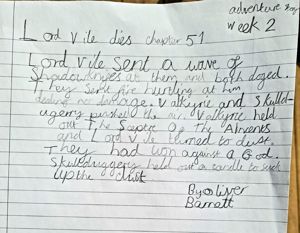 adventure
week 2
Lord Vile dies chapter 51
Lord Vile sent a wave of
Shadowknives at them and both doged.
They sent fire hurling at him
dealing no damage. Valkyrie and Skulld-
ugery pushed the air. Valkyrie held
out The Septre Of The Ancents
and Lord Vile turned to dust.
They had won against a God.
Skullduggery held out a candle to suck
up the dust
By Oliver
Barratt